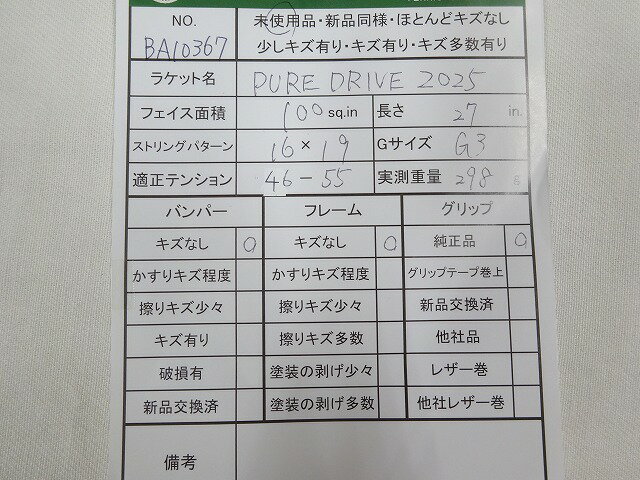 NO.
BA10367
未使用品・新品同様・ほとんどキズなし
少しキズ有り・キズ有り・キズ多数有り
ラケット名 PURE DRIVE 2025
フェイス面積 100 sq.in 長さ 27 in.
ストリングパターン 16×19 Gサイズ G3
適正テンション 46-55 実測重量 298 g
バンパー フレーム グリップ
キズなし ○ キズなし ○ 純正品 ○
かすりキズ程度 かすりキズ程度 グリップテープ巻上
擦りキズ少々 擦りキズ少々 新品交換済
キズ有り 擦りキズ多数 他社品
破損有 塗装の剥げ少々 レザー巻
新品交換済 塗装の剥げ多数 他社レザー巻
備考